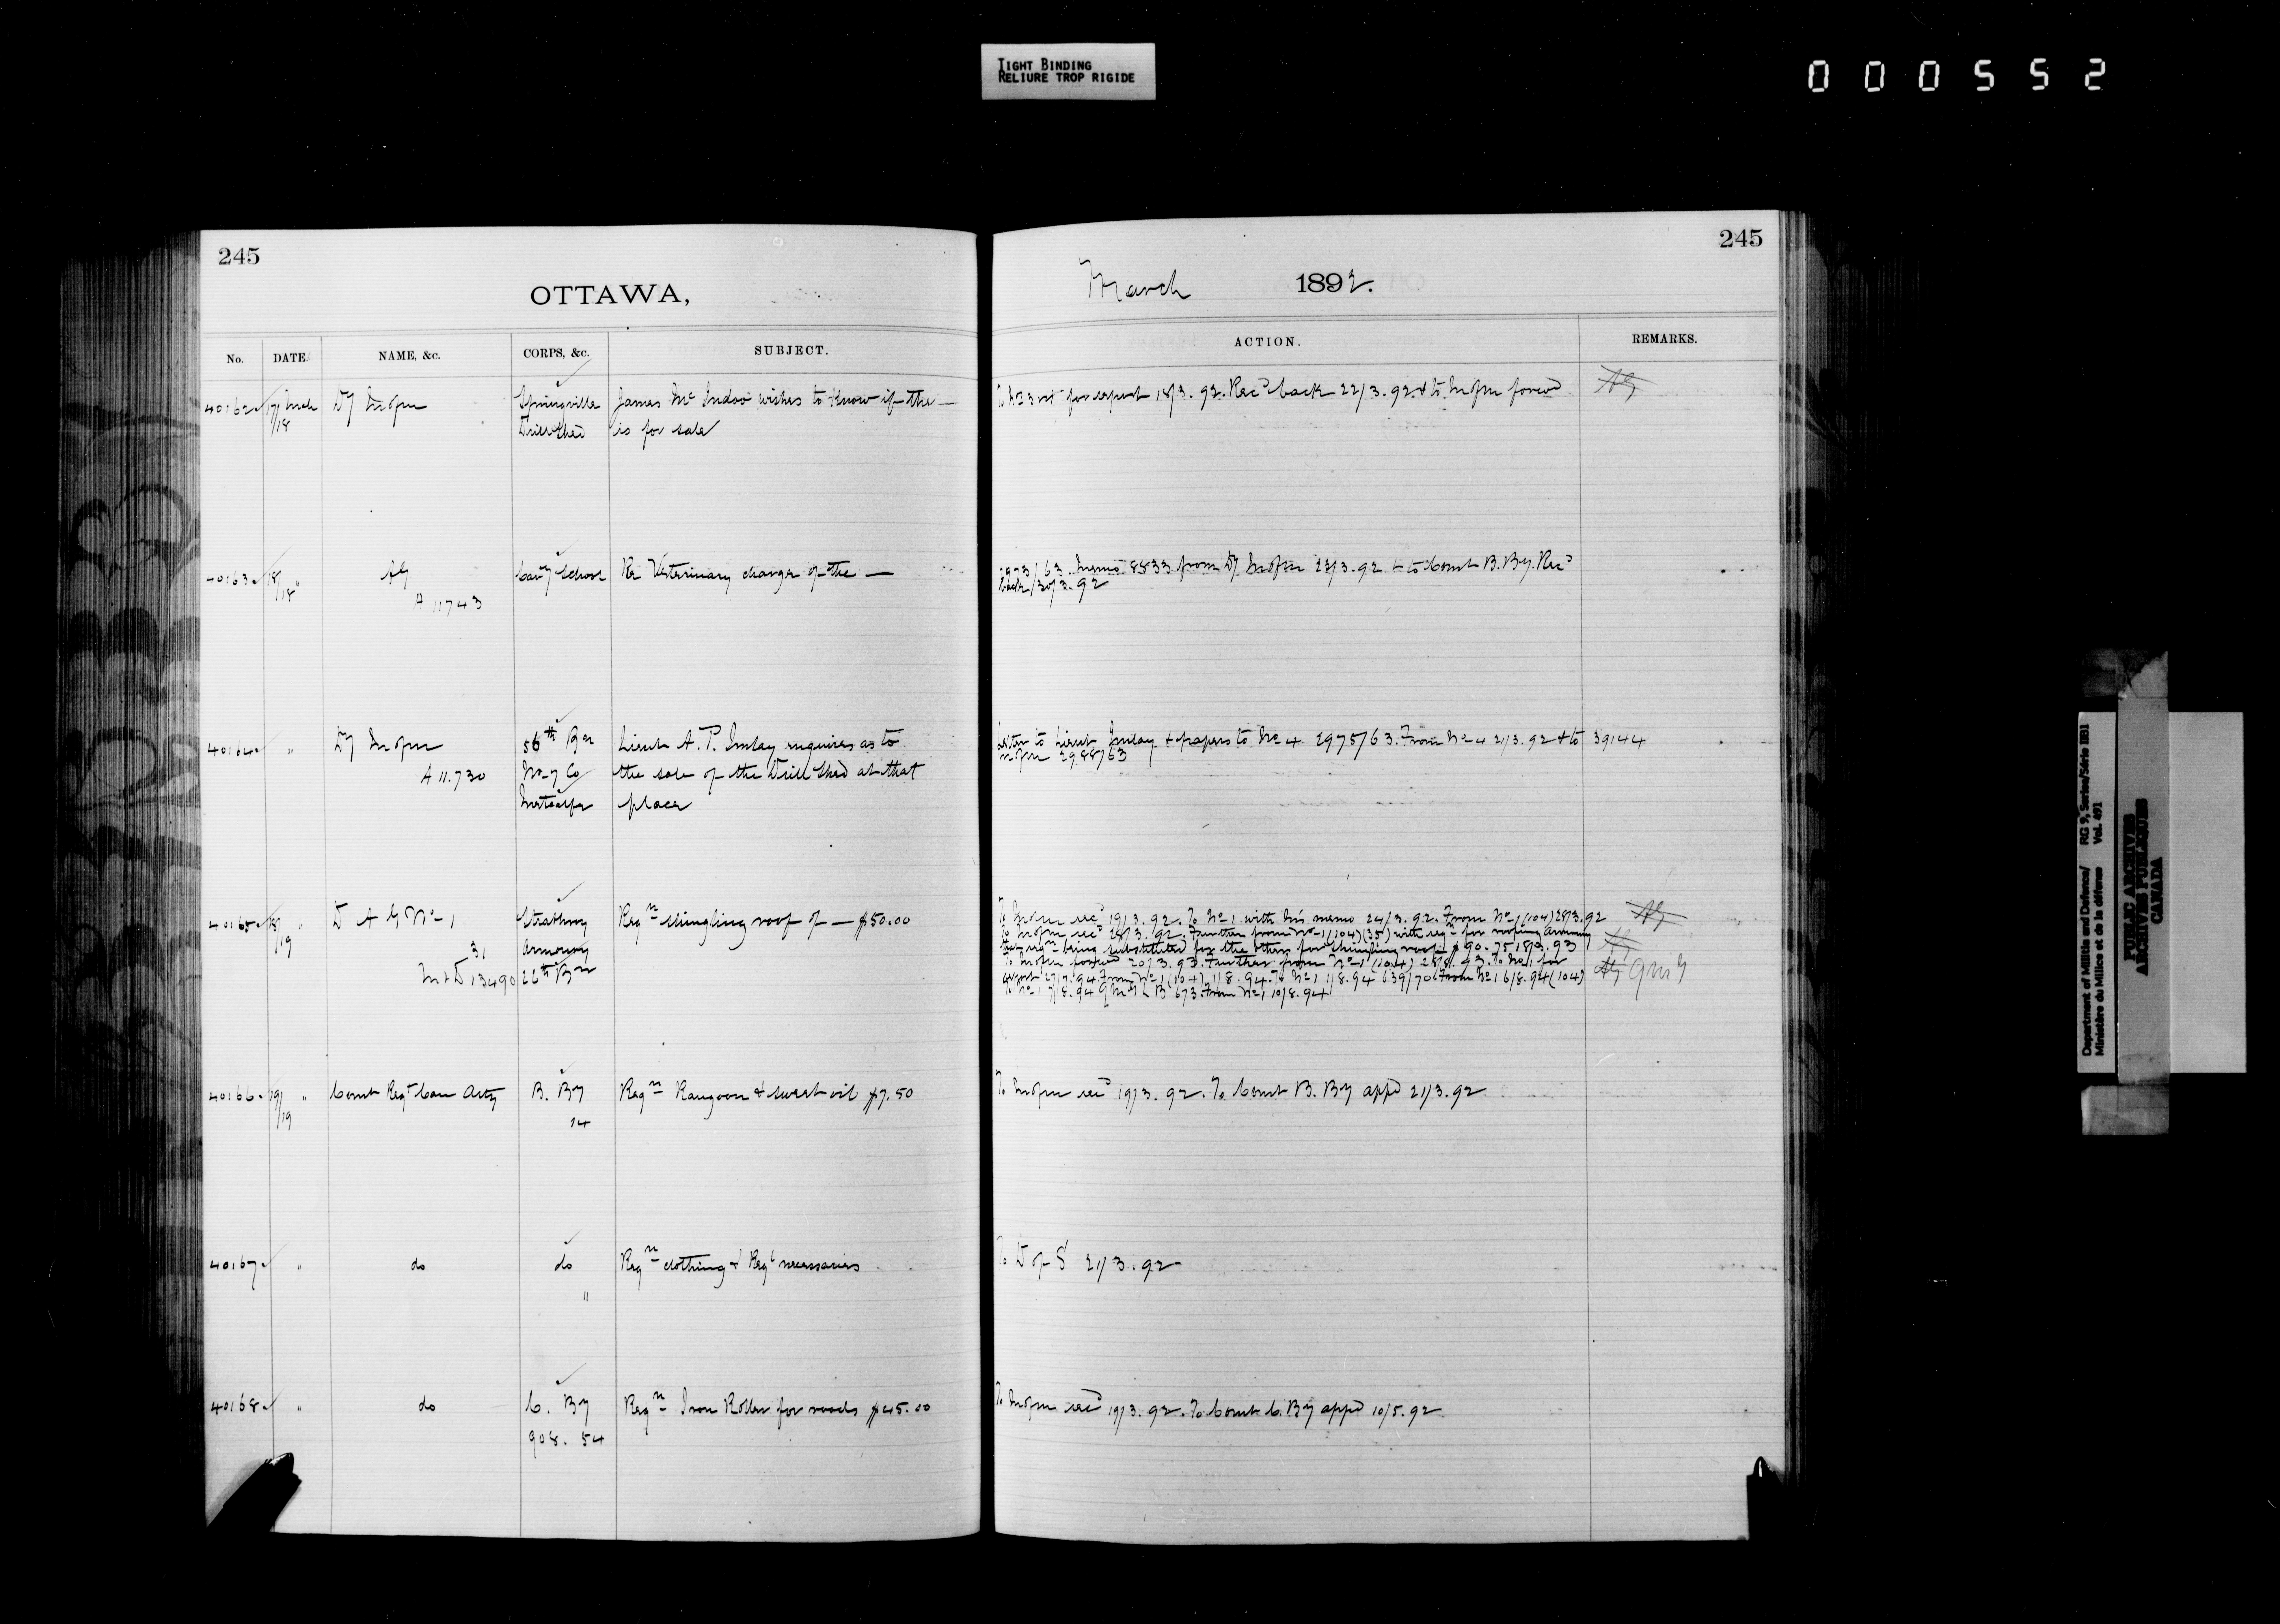 TIGHT BINDING
RELIURE TROP RIGIDE
000552
245
OTTAWA,
No. DATE. NAME, &c. CORPS, &c. SUBJECT.
40162 17/18 Mch Dy Springville James McIndoo wishes to know if the —
Drill Shed is for sale
40163 18/18 " AG Cavy School Re Veterinary charges of the —
A 11743
40164 " Dy 56th Bn Lieut A. P. Imlay enquires as to
A 11.730 No 7 Co the sale of the Drill Shed at that
Metcalfe place
40165 18/19 " D A G No 1 Strathroy Reqn shingling roof of — $50.00
31 Armoury
M & D 13490 26th Bn
40166 19/19 " Comt Regt Can Arty B. By Reqn Rangoon & sweet oil $7.50
14
40167 " do do Reqn clothing & Regl necessaries
"
40168 " do C. By Reqn Iron Roller for roads $45.00
908. 54
245
March 1892.
ACTION. REMARKS.
for report 18/3.92. Recd back 22/3.92 & to forwd AG
2973/63. Memo 8833 from Dy 23/3.92 & to Comt B. By. Recd
back 30/3.92
Letter to Lieut Imlay & papers to No 4. 2975/63. From No 4 21/3.92 & to 39144
2988/63
To recd 19/3.92. To No 1 with his memo 24/3.92. From No 1 (104) 28/3.92 AG
To recd 28/3.92. Further from No 1 (104) (35) with reqn for roofing armoury
that reqn being substituted for the other for shingling roof $90.75 18/3.93 AG
To forwd 20/3.93. Further from No 1 (104) 28/8.93. To No 1 for
report 27/7.94. From No 1 (104) 1/8.94. To No 1 1/8.94 639/70. From No 1 6/8.94 (104) AG QMG
To No 1 7/8.94 QMG L B 673. From No 1 10/8.94
To recd 19/3.92. To Comt B. By appd 21/3.92
To D of S 21/3.92
To recd 19/3.92. To Comt C. By appd 10/5.92
Department of Militia and Defence/ RG 9, Series/Série IIB1
Ministère du Milice et de la défense Vol. 491
PUBLIC ARCHIVES
ARCHIVES PUBLIQUES
CANADA